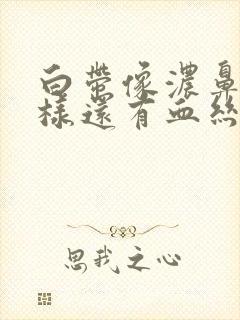 白帶像濃鼻
樣還有血絲
思我之心